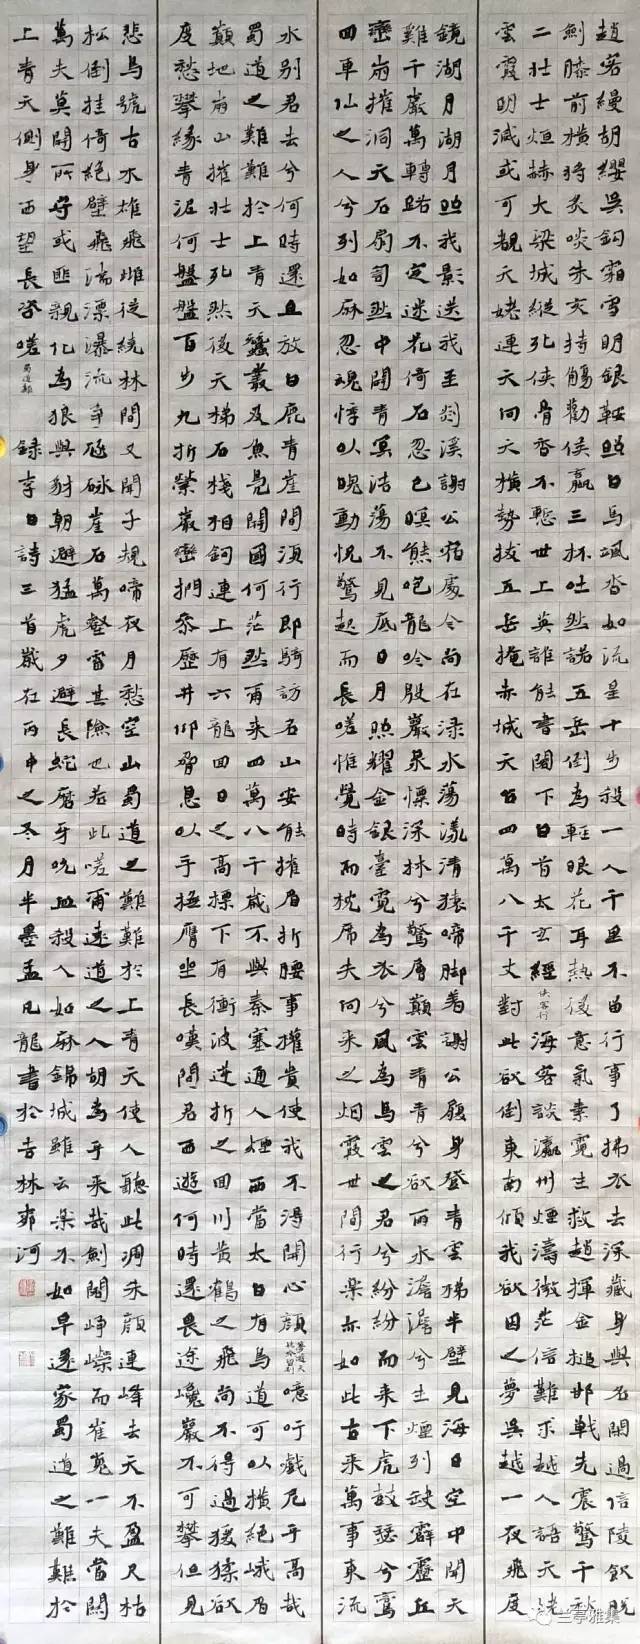 趙客縵胡纓吳鉤霜雪明銀鞍照白馬颯沓如流星十步殺一人千里不留行事了拂衣去深藏身與名閑過信陵飲脫
劍膝前橫將炙啖朱亥持觴勸侯嬴三杯吐然諾五岳倒為輕眼花耳熱後意氣素霓生救趙揮金槌邯戰先震驚千秋
二壯士烜赫大梁城縱死俠骨香不慙世上英誰能書閣下白首太玄經俠客行海客談瀛州煙濤微茫信難求越人語天姥
雲霞明滅或可覩天姥連天向天橫勢拔五岳掩赤城天台四萬八千丈對此欲倒東南傾我欲因之夢吳越一夜飛度
鏡湖月湖月照我影送我至剡溪謝公宿處今尚在淥水蕩漾清猿啼脚着謝公屐身登青雲梯半壁見海日空中聞天
雞千巖萬轉路不定迷花倚石忽已暝熊咆龍吟殷巖泉慄深林兮驚層巔雲青青兮欲雨水澹澹兮生煙列缺霹靂丘
巒崩摧洞天石扇訇然中開青冥浩蕩不見底日月照耀金銀臺霓為衣兮風為馬雲之君兮紛紛而來下虎鼓瑟兮鸞
回車仙之人兮列如麻忽魂悸以魄動怳驚起而長嗟惟覺時而枕席失向來之烟霞世間行樂亦如此古來萬事東流
水別君去兮何時還且放白鹿青崖間須行即騎訪名山安能摧眉折腰事權貴使我不得開心顏夢遊天姥吟留別噫吁戲危乎高哉
蜀道之難難於上青天蠶叢及魚鳧開國何茫然爾來四萬八千歲不與秦塞通人煙西當太白有鳥道可以橫絕峨眉
巔地崩山摧壯士死然後天梯石棧相鉤連上有六龍回日之高標下有衝波逆折之回川黃鶴之飛尚不得過猨猱欲
度愁攀緣青泥何盤盤百步九折縈巖巒捫參歷井仰脅息以手撫膺坐長嘆問君西遊何時還畏途巉巖不可攀但見
悲鳥號古木雄飛雌從繞林間又聞子規啼夜月愁空山蜀道之難難於上青天使人聽此凋朱顏連峰去天不盈尺枯
松倒挂倚絕壁飛湍漂瀑流爭砯崖石萬壑雷其險也若此嗟爾遠道之人胡為乎來哉劍閣崢嶸而崔嵬一夫當關
萬夫莫開所守或匪親化為狼與豺朝避猛虎夕避長蛇磨牙吮血殺人如麻錦城雖云樂不如早還家蜀道之難難於
上青天側身西望長咨嗟蜀道難錄李白詩三首歲在丙申之冬月半墨孟凡龍書於吉林河
兰亭雅集